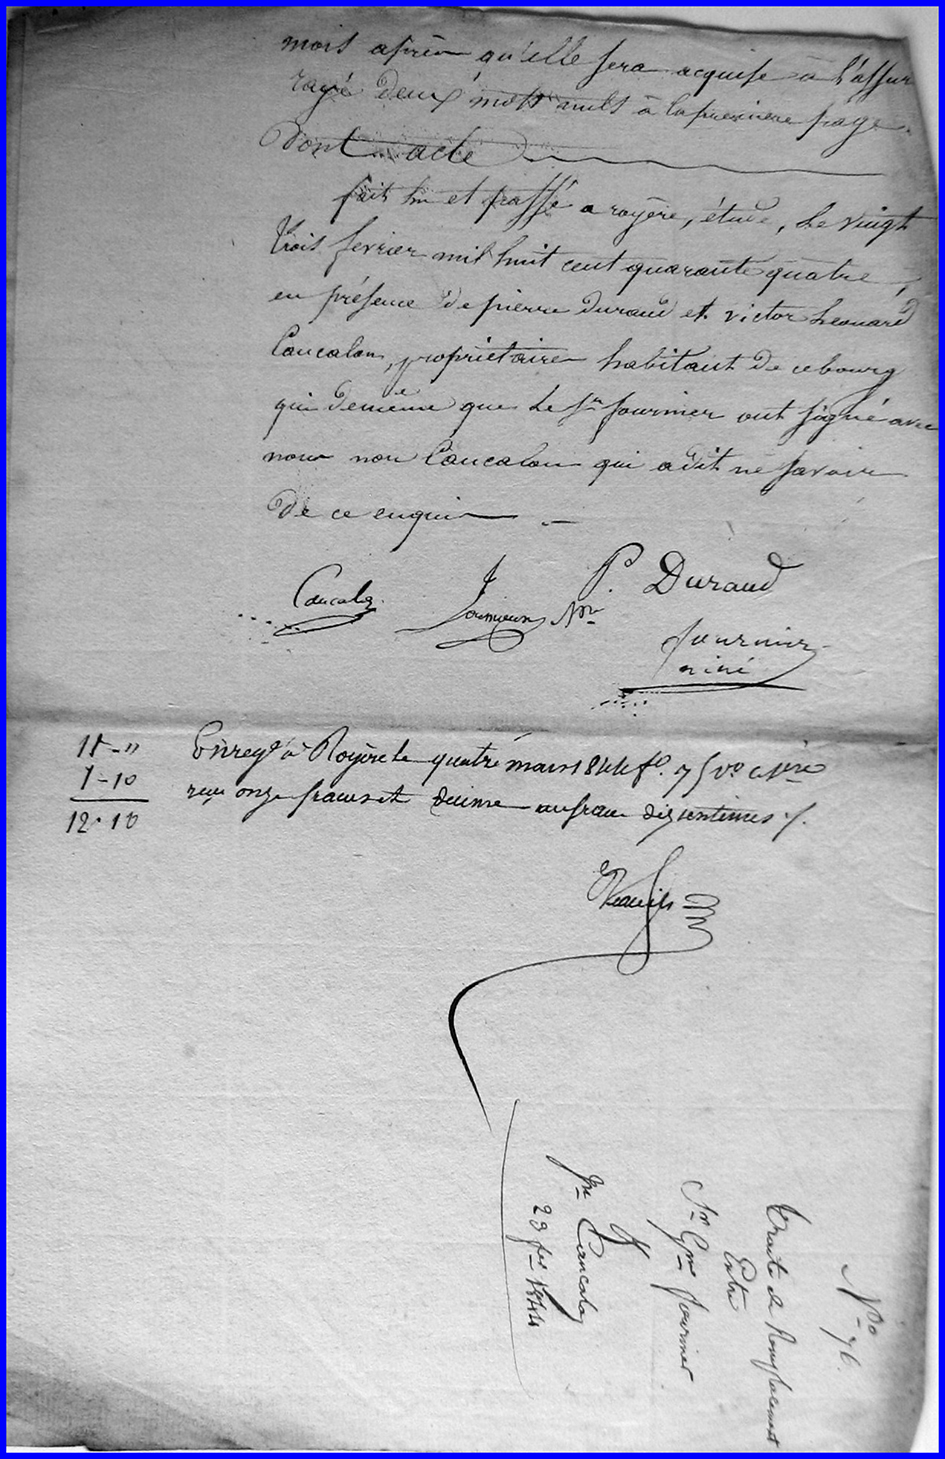 mois après qu'elle sera acquise à l'assur
rayé deux mots nuls à la première page.
Dont acte
fait lu et passé a royère, étude, le vingt
trois fevrier mil huit cent quarante quatre,
en présence de pierre durand et victor Leonard
Cancalon, propriétaires habitant de ce bourg
qui de même que le Sr fournier ont signé avec
nous non Cancalon qui a dit ne savoir
de ce enquis
P. Durand
Cancalon
Nre
fournier
ainé
11 - "
1 - 10
12 - 10
Enregé à Royère le quatre mars 1844 fo. 75 vo
reçu onze francs et decime au franc dix centimes
No 76.
Traité de Remplacement
Entre
Sr Gme fournier
&
Jn Cancalon
23 fer 1844